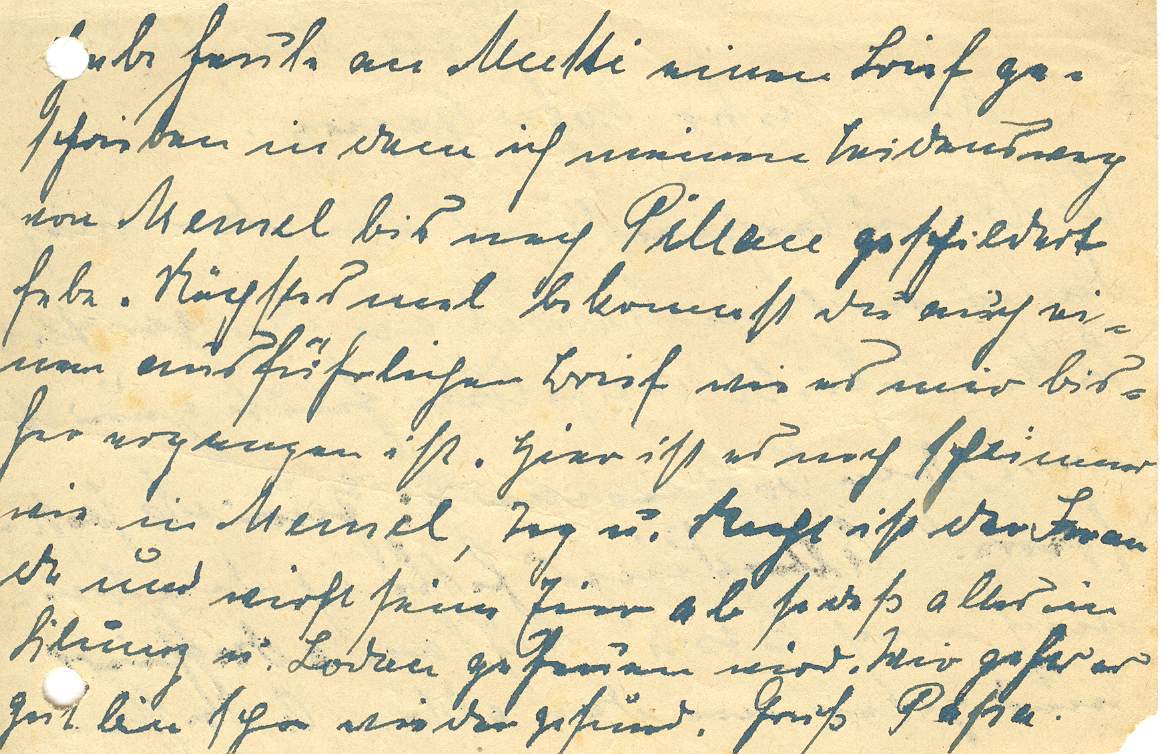 habe heute an Mutti einen Brief ge-
schrieben in dem ich meinen Leidensweg
von Memel bis nach Pillau geschildert
habe. Nächstes mal bekommst du auch ei-
nen ausführlichen Brief wie es mir bis-
her ergangen ist. Hier ist es noch schlimmer
wie in Memel, Tag u. Nacht ist der Iwan
da und wirft seine Eier ab so daß alles in
u. Boden gehauen wird. Mir geht es
gut bin schon wieder gesund. Gruß Papa.